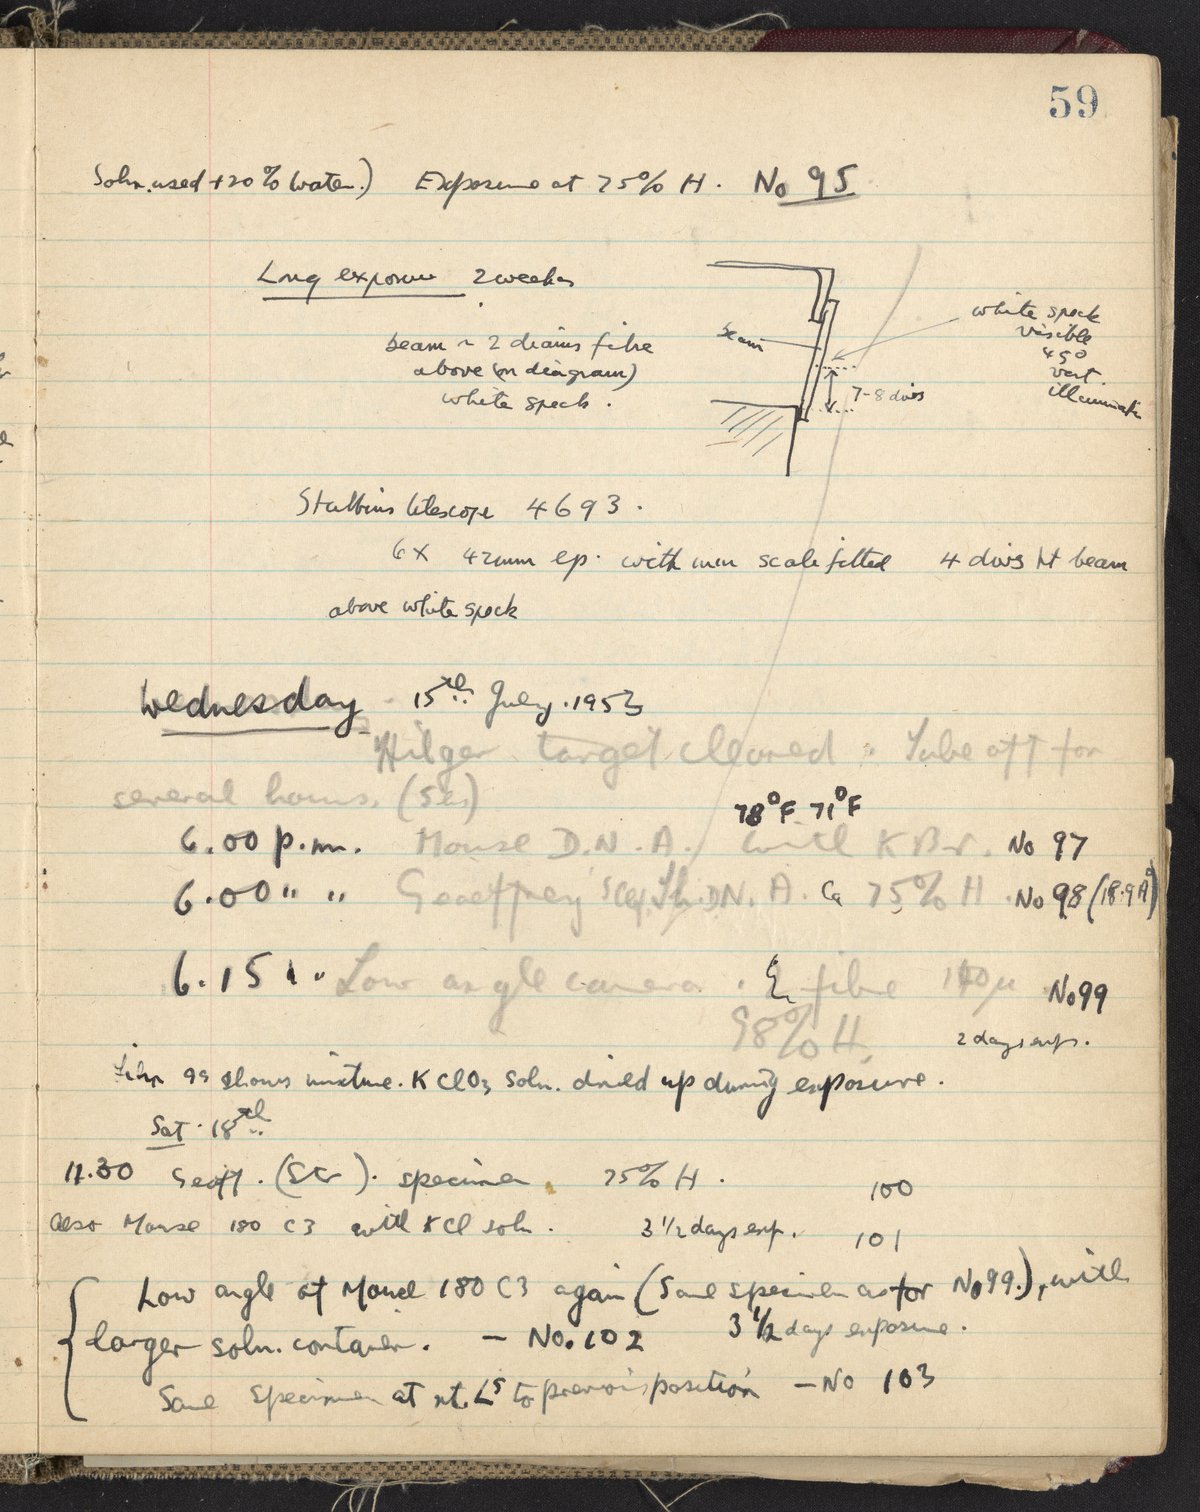 59
Soln. used +20% water.) Exposure at 75% H. No 95
Long exposure 2 weeks
beam ~ 2 diams fibre
above (on diagram)
white speck.
beam
white speck
visible
45°
vert.
illuminatn
7-8 divs
Stubbins telescope 4693.
6x 42mm ep. with mm scale fitted 4 divs ht beam
above white speck
Wednesday 15th July. 1953
Hilger target cleaned. Tube off for
several hours.
78°F 71°F
6.00 p.m. Mouse D.N.A. with KBr. No 97
6.00 " " Geoffrey's D.N.A. 75% H. No 98 (18.9 A°)
6.15 " " Low angle camera. fibre μ No 99
98% H.
2 days exp.
Film 99 shows mixture. KClO3 soln. dried up during exposure.
Sat. 18th
11.30 Geoff. specimen 75% H. 100
also Mouse 180 C3 with KCl soln. 3 1/2 days exp. 101
Low angle of Mouse 180 C3 again (Same specimen as for No 99.), with
larger soln. container. — No. 102 3 1/2 days exposure.
Same specimen at rt. Ls to previous position — No 103